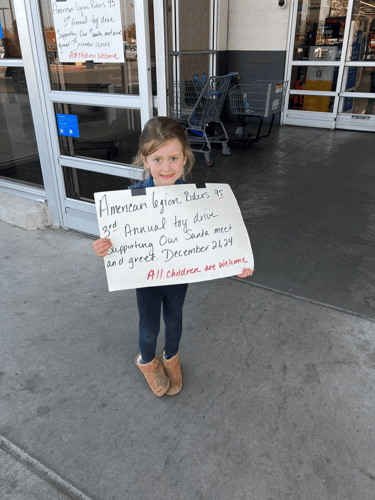 American Legion Riders 95
3rd Annual toy drive
Supporting Our Santa meet and
greet December 21,2024
All Children are Welcome
American legion Riders 95
3rd Annual toy drive
Supporting Our Santa meet
and greet December 21,24
All Children are Welcome